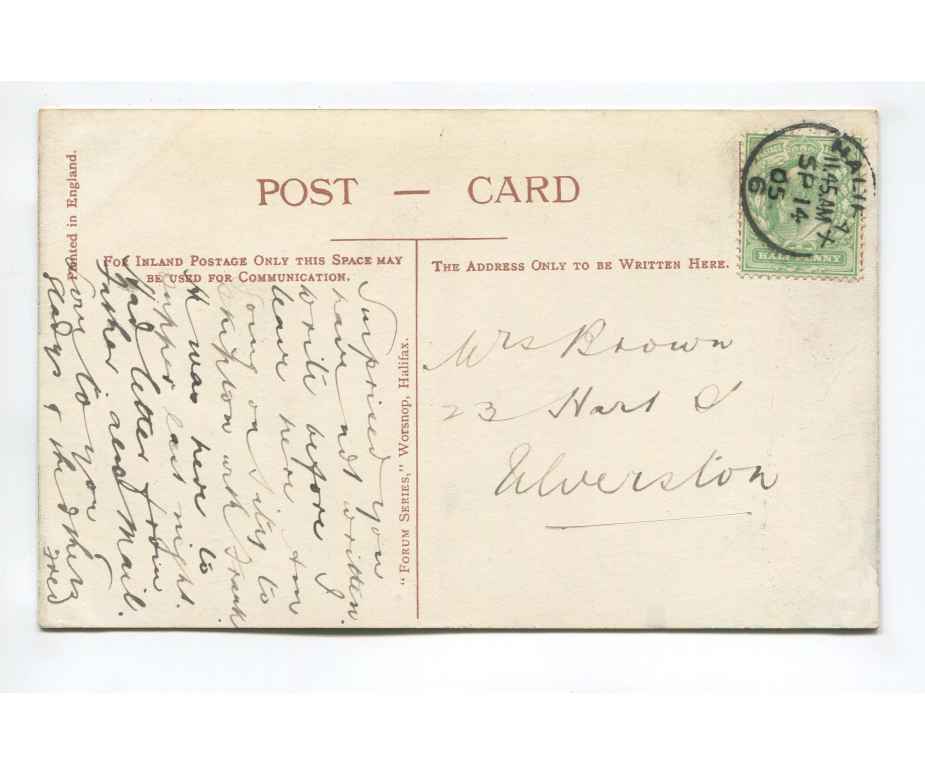 Printed in England.
POST — CARD
FOR INLAND POSTAGE ONLY THIS SPACE MAY
BE USED FOR COMMUNICATION.
THE ADDRESS ONLY TO BE WRITTEN HERE.
"FORUM SERIES," WORSNOP, HALIFAX.
HALIFAX
11.45 AM
SP 14
05
6
HALFPENNY
Surprised you
have not written.
write before I
leave here Am
going on Sites to
with Frank
He was here to
supper last night.
Had letter from
Father and Mail.
Love to you
Gladys & the others
Fred
Mrs Brown
23 Hart St
Ulverston